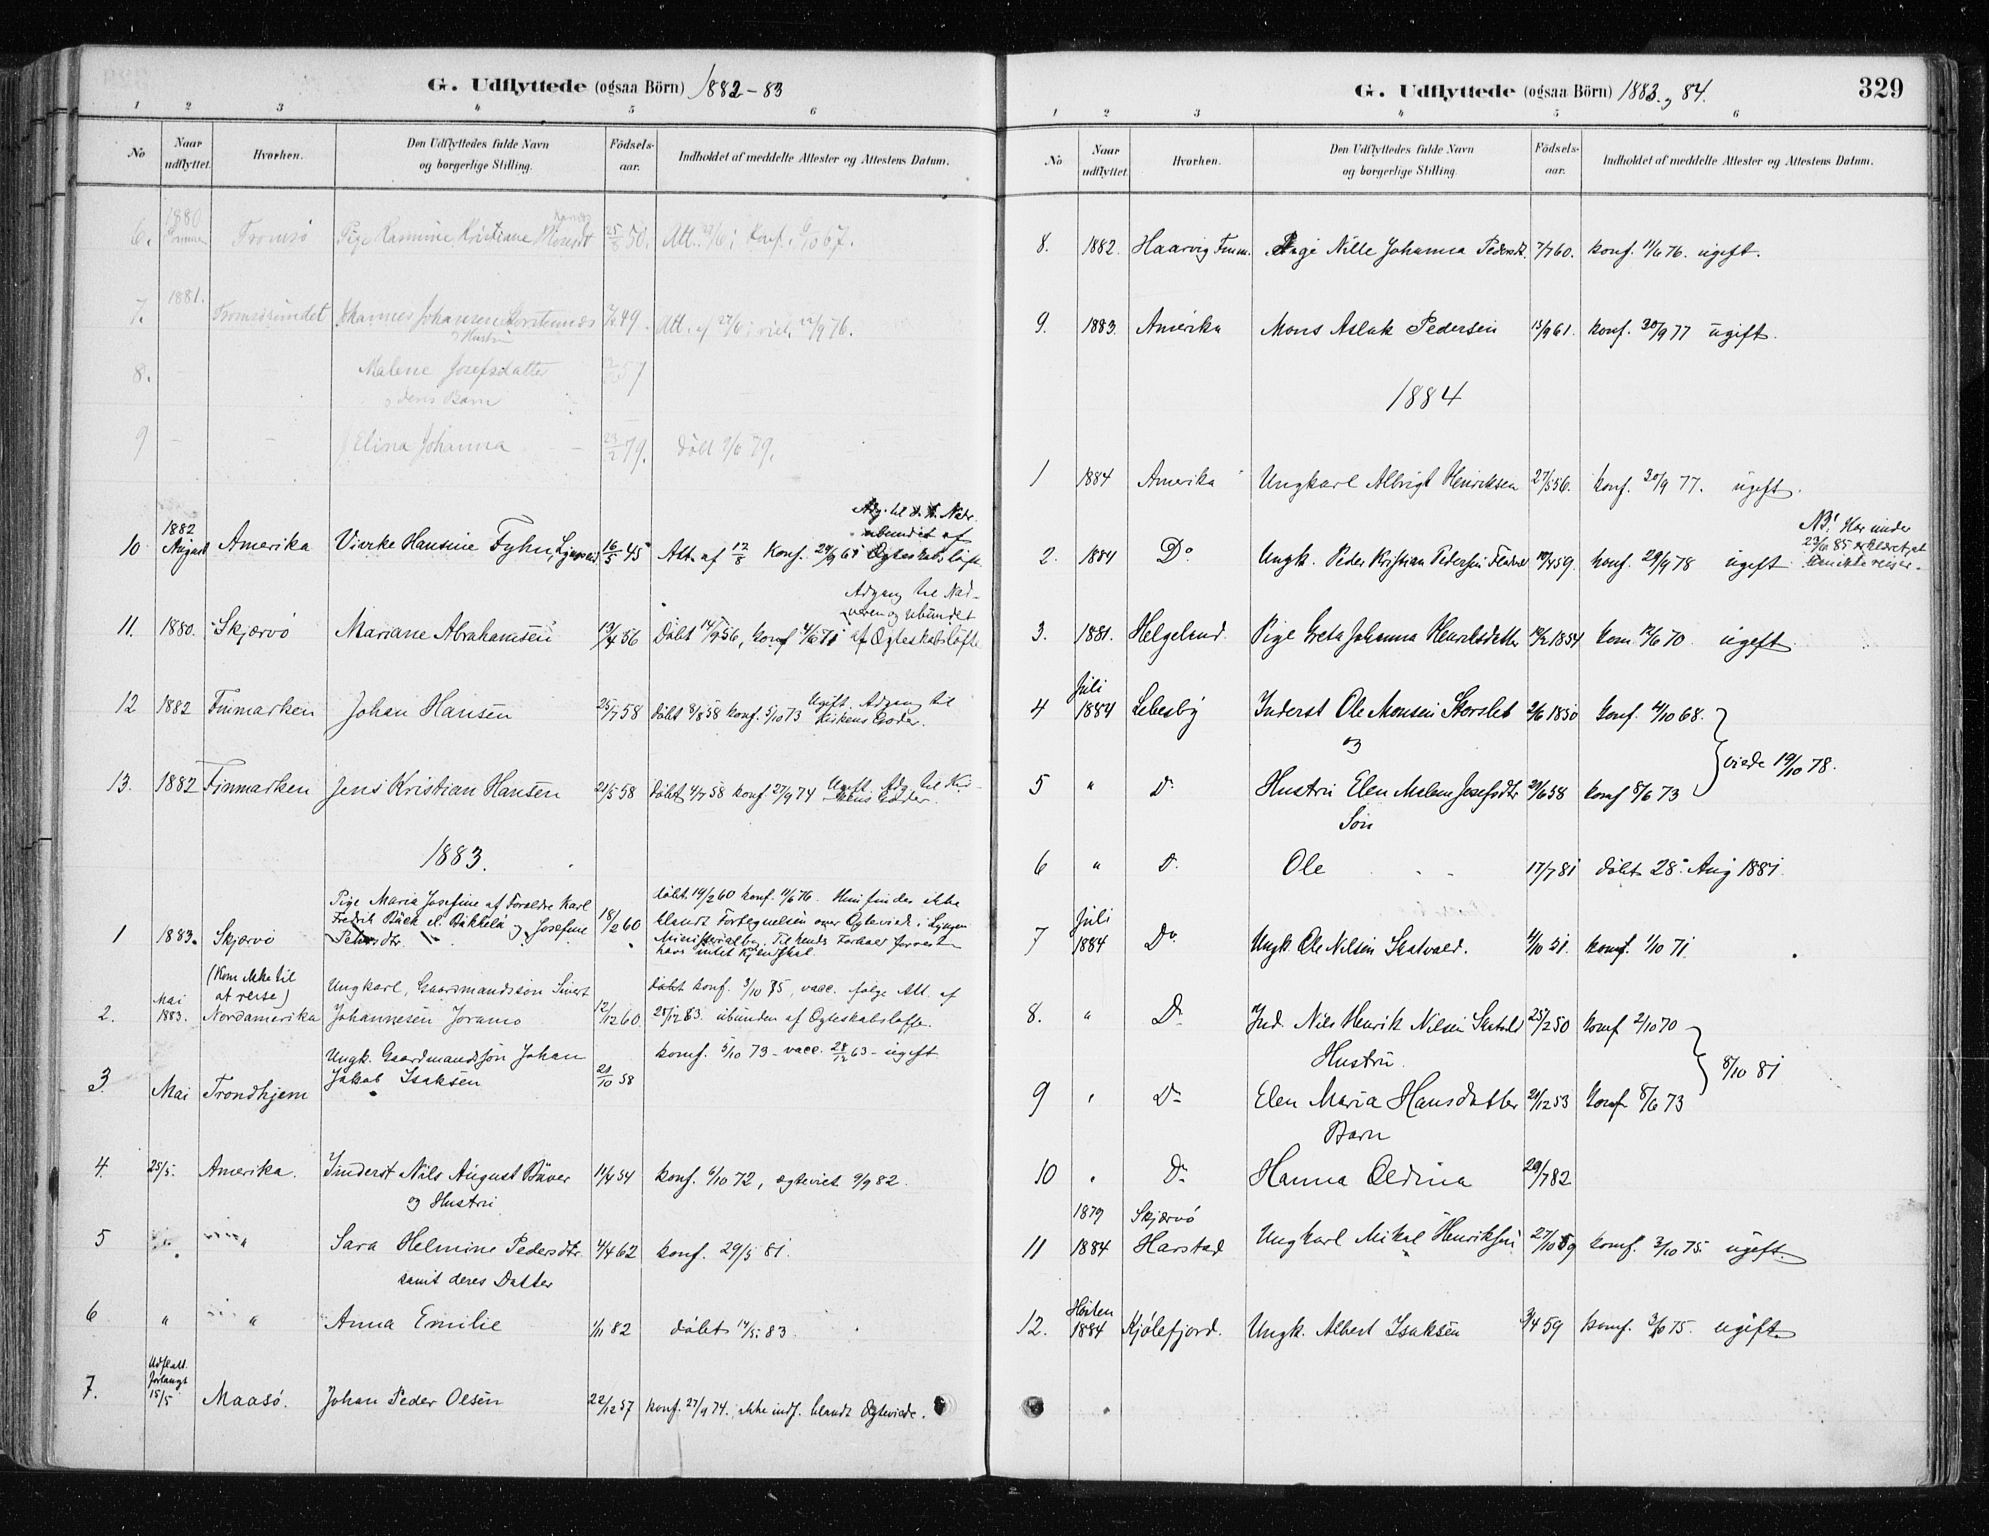 G. Udflyttede (ogsaa Börn) 1882-83
1 2 3 4 5 6
No Naar udflyttet. Hvorhen. Den Udflyttedes fulde Navn og borgerlige Stilling. Födsels-aar. Indholdet af meddelte Attester og Attestens Datum.
6. 1880 Tromsö Pige Kristiane 50. Att. Konf. 67.
1881.
7. Tromsösundet Johannes Johansen 49. Att. af viet. 76.
8. Malene Josefsdatter 57
deres Barn
9 Elina Johanna 23/2 79. Döbt 79.
Adg. til d. h. Nadv.
ubundet af
10 1882 August Amerika Hansine Fyhn, 16/5 45 Att. af 12/8 Konf. Ægteskabsløfte
Adgang til Nad-
veren og ubundet
11. 1880. Skjærvö Mariane Abrahamsen 56 Döbt 56, konf. af Ægteskabsløfte
12 1882 Finmarken Johan Hansen 25/7 58 Döbt 8/8 58 konf. 5/10 73 Ugift. Adgang til Kirkens Goder.
13. 1882 Finmarken Jens Kristian Hansen 21/5 58 Döbt 4/7 58 konf. 27/9 74 Ugift. Adg. til Kir-kens Goder.
1883.
Pige Maria Josefine af Foreldre Karl
Fredrik Bäck og Josefine
1 1883. Skjærvö Petersdtr. 18/2 60
döbt 19/2 60 konf. 11/6 76. Hun findes ikke
blandt Fortegnelsen over Ægteviede i Lyngen
Ministerialbog. Til hends Fordeel forresten
havs intet Kjendskal.
(Kom ikke til
at reise)
2. Mai 1883. Nordamerika Ungkarl, Gaardsmandssön Sivert
Johannesen Joramo 12/12 60. konf. 3/10 75, vacc. følge Att. af
28/12 63. ubunden af Ægteskabsløfte.
3. Mai Trondhjem Ungk. Gaardmandssön Johan
Jakob Isaksen 21/10 58 konf. 5/10 73 - vacc. 28/12 63 - ugift
4. 25/5. Amerika. Inderst Nils August Bäver 11/4 54 konf. 6/10 72, ægteviet 9/9 82.
og Hustru
5 Sara Helmine Pedersdtr. 4/4 62 konf. 29/5 81.
samt deres Datter
6 " " Anna Emilie 1/11 82 döbt 14/5 83.
Udflatt.
forlangt
7. 15/5 Maasö. Johan Peder Olsen 22/12 57 konf. 27/9 74. ikke indf. blandt Ægteviede.
G. Udflyttede (ogsaa Börn) 1883. og 84. 329
1 2 3 4 5 6
No Naar udflyttet. Hvorhen. Den Udflyttedes fulde Navn og borgerlige Stilling. Födsels-aar. Indholdet af meddelte Attester og Attestens Datum.
8. 1882. Haarvig Finm. Pige Nille Johanna Pedersdt. 7/7 60. konf. 11/6 76. ugift.
9. 1883. Amerika Mons Aslak Pedersen 15/9 61. konf. 30/9 77 ugift.
1884
1 1884 Amerika Ungkarl Albrigt Henriksen 27/5 56. konf. 30/9 77. ugift.
NB! Har under
23/6 85 erklæret, at
2. 1884 Do Ungk. Peder Kristian Pedersen 59. konf. 29/9 78 ugift han ikke reiser.
3. 1881. Helgeland Pige Greta Johanna Henriksdatter 1854 kon. 12/6 70 ugift
Juli
4 1884 Lebesby Inderst Ole Monsen Storslet 2/6 1850 konf. 4/10 68.
og
viede 19/10 78.
5 " Do Hustru Elen Malene Josefsdtr 21/6 58 konf 8/6 73
Sön
6 " D. Ole 17/7 81 döbt 28. Aug 1881.
Juli
7 1884 Do Ungk. Ole Nilsen Skatvold. 4/10 51. konf. 1/10 71
8. " Do Ind. Nils Henrik Nilsen 25/2 50 konf 2/10 70
Hustru.
8/10 81
9 " Do Elen Maria Hansdatter 21/12 53 konf 8/6 73
Barn
10 " Do Hanna Oldina 29/7 82
1879 Skjærvö
11 1884 Harstad Ungkarl Mikal Henriksen 27/10 59 konf. 3/10 75. ugift.
Hösten
12. 1884 Kjöllefjord. Ungk. Albert Isaksen 3/4 59 konf. 3/10 75. ugift